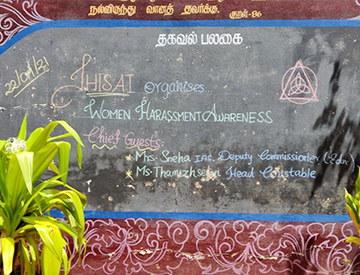 நல்விருந்து வானத் தவர்க்கு. குறள்-86
தகவல் பலகை
THISAI
organises..
WOMEN HARASSMENT AWARENESS
Chief Guests:
* Mrs. Sneha I.A.S, Deputy Commissioner
* Ms. Thamizhselvi Head Constable